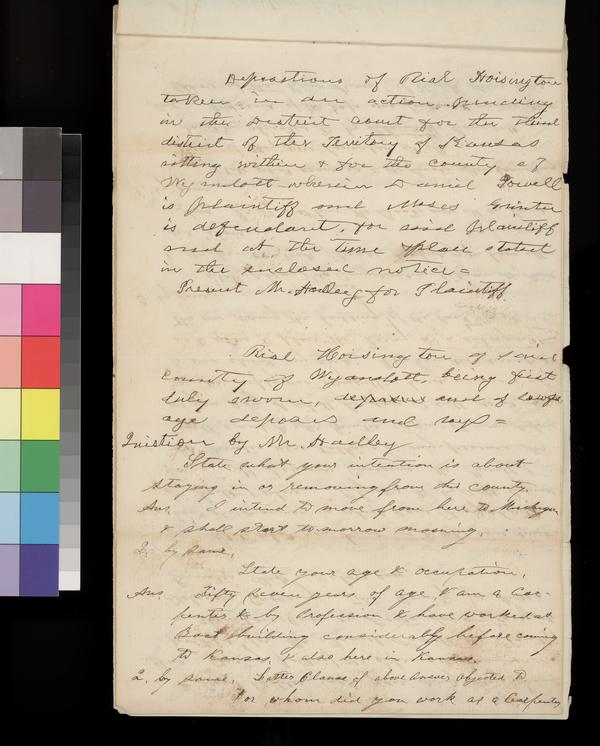 Depositions of Rial Hoisington
taken in an action pending
in the District Court for the Third
district of the Territory of Kansas
sitting within & for the county of
Wyandott wherein Daniel Powell
is plaintiff and Moses Grinter
is defendant, for said plaintiff
and at the time & place stated
in the enclosed notice =
Present Mr. Hadley for Plaintiff.
Rial Hoisington of said
county of Wyandott, being first
duly sworn, and of lawful
age deposes and says =
Question by Mr. Hadley
State what your intention is about
staying in or removing from this county.
Ans. I intend to move from here to Michigan
& shall start tomorrow morning.
2. by same.
State your age & occupation.
Ans. Fifty seven years of age & am a Car-
penter & by Profession & have worked at
Boat building considerably before coming
to Kansas, & also here in Kansas.
2. by same. Latter Clause of above Answer Objected to
For whom did you work as a Carpenter